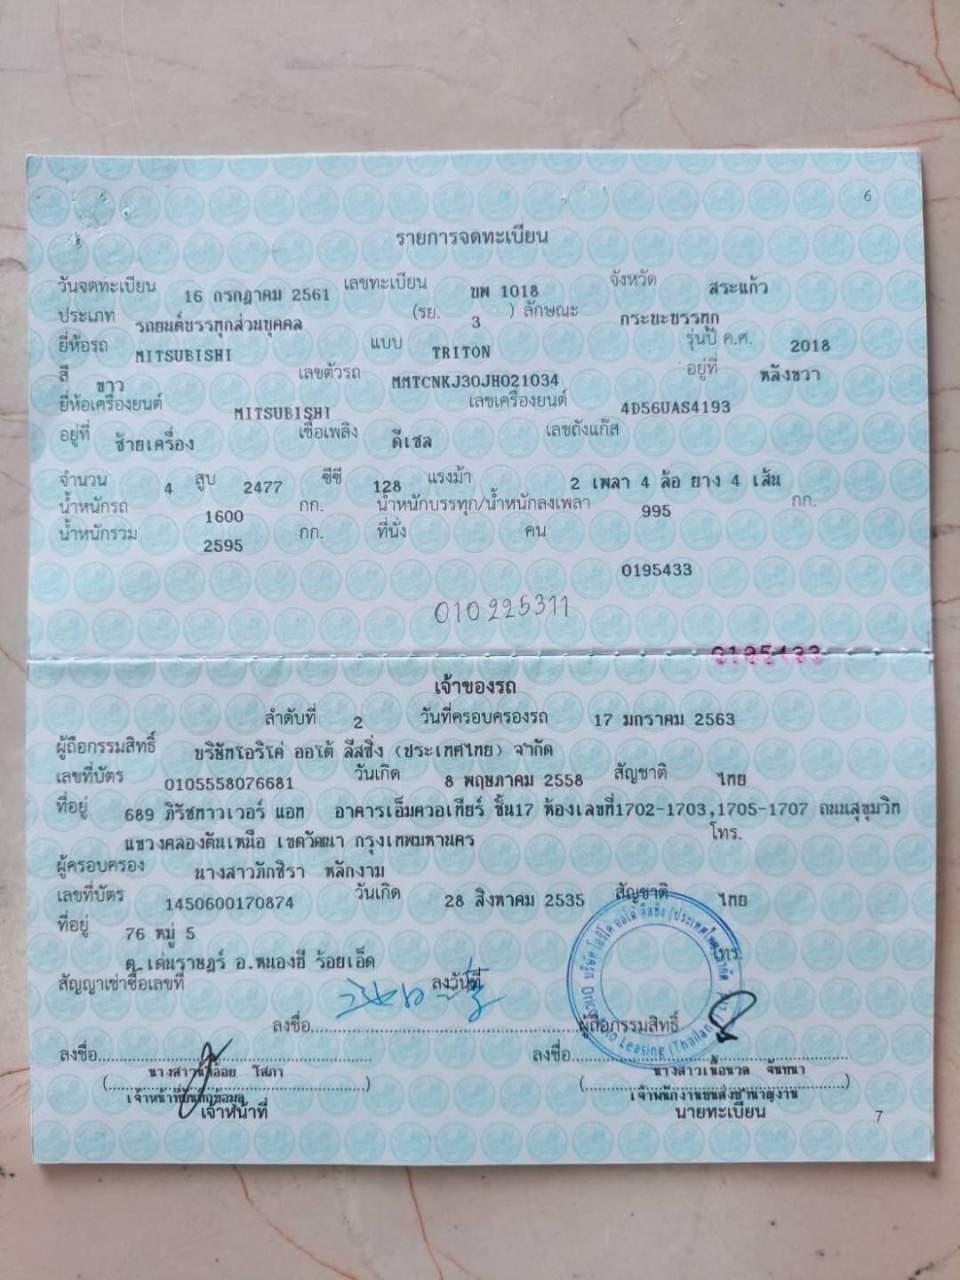 6
รายการจดทะเบียน
วันจดทะเบียน 16 กรกฎาคม 2561 เลขทะเบียน ขพ 1018 จังหวัด สระแก้ว
ประเภท รถยนต์บรรทุกส่วนบุคคล (รย. 3 ) ลักษณะ กระบะบรรทุก
ยี่ห้อรถ MITSUBISHI แบบ TRITON รุ่นปี ค.ศ. 2018
สี ขาว เลขตัวรถ MMTCNKJ30JH021034 อยู่ที่ หลังขวา
ยี่ห้อเครื่องยนต์ MITSUBISHI เลขเครื่องยนต์ 4D56UAS4193
อยู่ที่ ซ้ายเครื่อง เชื้อเพลิง ดีเซล เลขถังแก๊ส
จำนวน 4 สูบ 2477 ซีซี 128 แรงม้า 2 เพลา 4 ล้อ ยาง 4 เส้น
น้ำหนักรถ 1600 กก. น้ำหนักบรรทุก/น้ำหนักลงเพลา 995 กก.
น้ำหนักรวม 2595 กก. ที่นั่ง คน
0195433
010225311
0195433
เจ้าของรถ
ลำดับที่ 2 วันที่ครอบครองรถ 17 มกราคม 2563
ผู้ถือกรรมสิทธิ์ บริษัทโอริโค่ ออโต้ ลีสซิ่ง (ประเทศไทย) จำกัด
เลขที่บัตร 0105558076681 วันเกิด 8 พฤษภาคม 2558 สัญชาติ ไทย
ที่อยู่ 689 ภิรัชทาวเวอร์ แอท อาคารเอ็มควอเทียร์ ชั้น17 ห้องเลขที่1702-1703,1705-1707 ถนนสุขุมวิท
แขวงคลองตันเหนือ เขตวัฒนา กรุงเทพมหานคร โทร.
ผู้ครอบครอง นางสาวภักชิรา หลักงาม
เลขที่บัตร 1450600170874 วันเกิด 28 สิงหาคม 2535 สัญชาติ ไทย
ที่อยู่ 76 หมู่ 5 โทร.
ต.เด่นราษฎร์ อ.หนองฮี ร้อยเอ็ด
สัญญาเช่าซื้อเลขที่ ลงวันที่
ลงชื่อ ผู้ถือกรรมสิทธิ์
ลงชื่อ ลงชื่อ
โสภา นางสาวเนื้อนวล จันทนา
เจ้าหน้าที่บันทึกข้อมูล เจ้าพนักงานขนส่งชำนาญงาน
เจ้าหน้าที่ นายทะเบียน
7